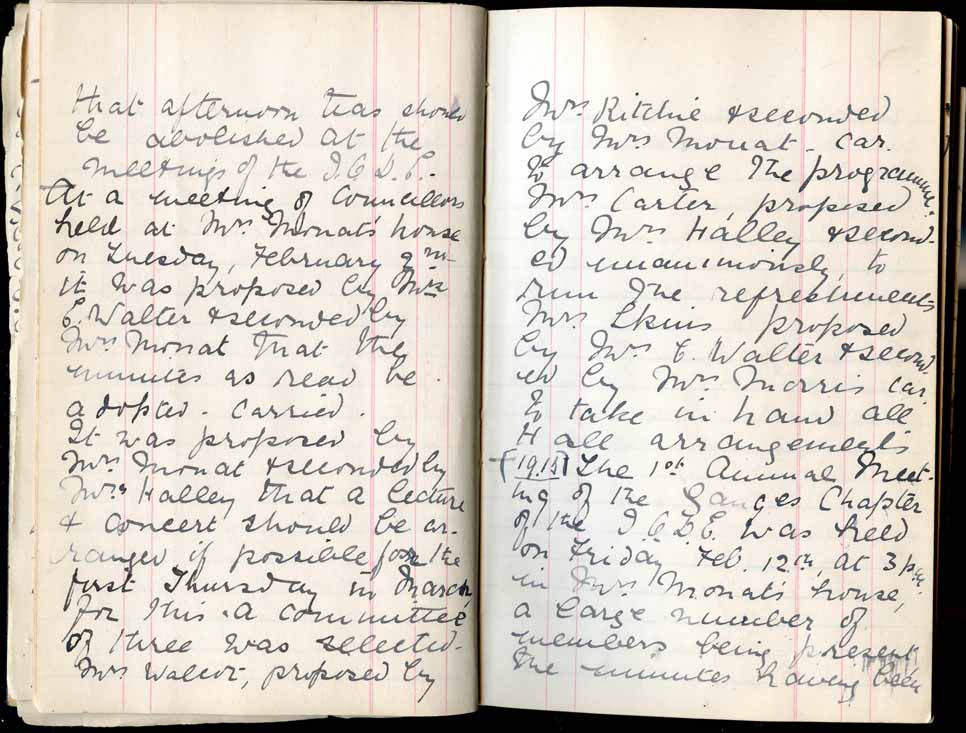 that afternoon teas should
be abolished at the
meetings of the I.O.D.E.-
At a meeting of Councillors
held at Mrs Mouat's house
on Tuesday, February 9th
it was proposed by Mrs
E. Walter & seconded by
Mrs Mouat that the
minutes as read be
adopted - carried.
It was proposed by
Mrs Mouat & seconded by
Mrs Halley that a lecture
& concert should be ar-
ranged if possible for the
first Thursday in March,
for this a committee
of three was selected.
Mrs Walcot, proposed by
Mrs Ritchie & seconded
by Mrs Mouat - car.
to arrange the programme.
Mrs Carter, proposed
by Mrs Halley & second-
ed unanimously, to
run the refreshments
Mrs Ekins proposed
by Mrs E. Walter & second
ed by Mrs Morris car.
to take in hand all
Hall arrangements
(1915) The 1st Annual Meet-
ing of the Ganges Chapter
of the I.O.D.E. was held
on Friday Feb. 12th, at 3 p.m.
in Mrs Mouat's house,
a large number of
members being present,
the minutes having been